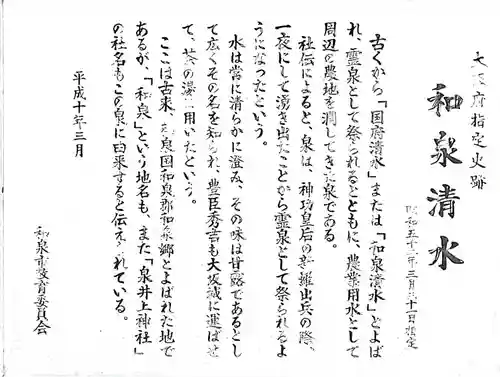 大阪府指定史跡
和泉清水
昭和五十二年三月三十一日指定
古くから「国府清水」または「和泉清水」とよば
れ、霊泉として祭られるとともに、農業用水として
周辺の農地を潤してきた泉である。
社伝によると、泉は、神功皇后の新羅出兵の際、
一夜にして湧き出たことから霊泉として祭られるよ
うになったという。
水は常に清らかに澄み、その味は甘露であるとし
て広くその名を知られ、豊臣秀吉も大阪城に運ばせ
て、茶の湯に用いたという。
ここは古来、和泉国和泉郡和泉郷とよばれた地で
あるが、「和泉」という地名も、また「泉井上神社」
の社名もこの泉に由来すると伝えられている。
平成十年三月
和泉市教育委員会